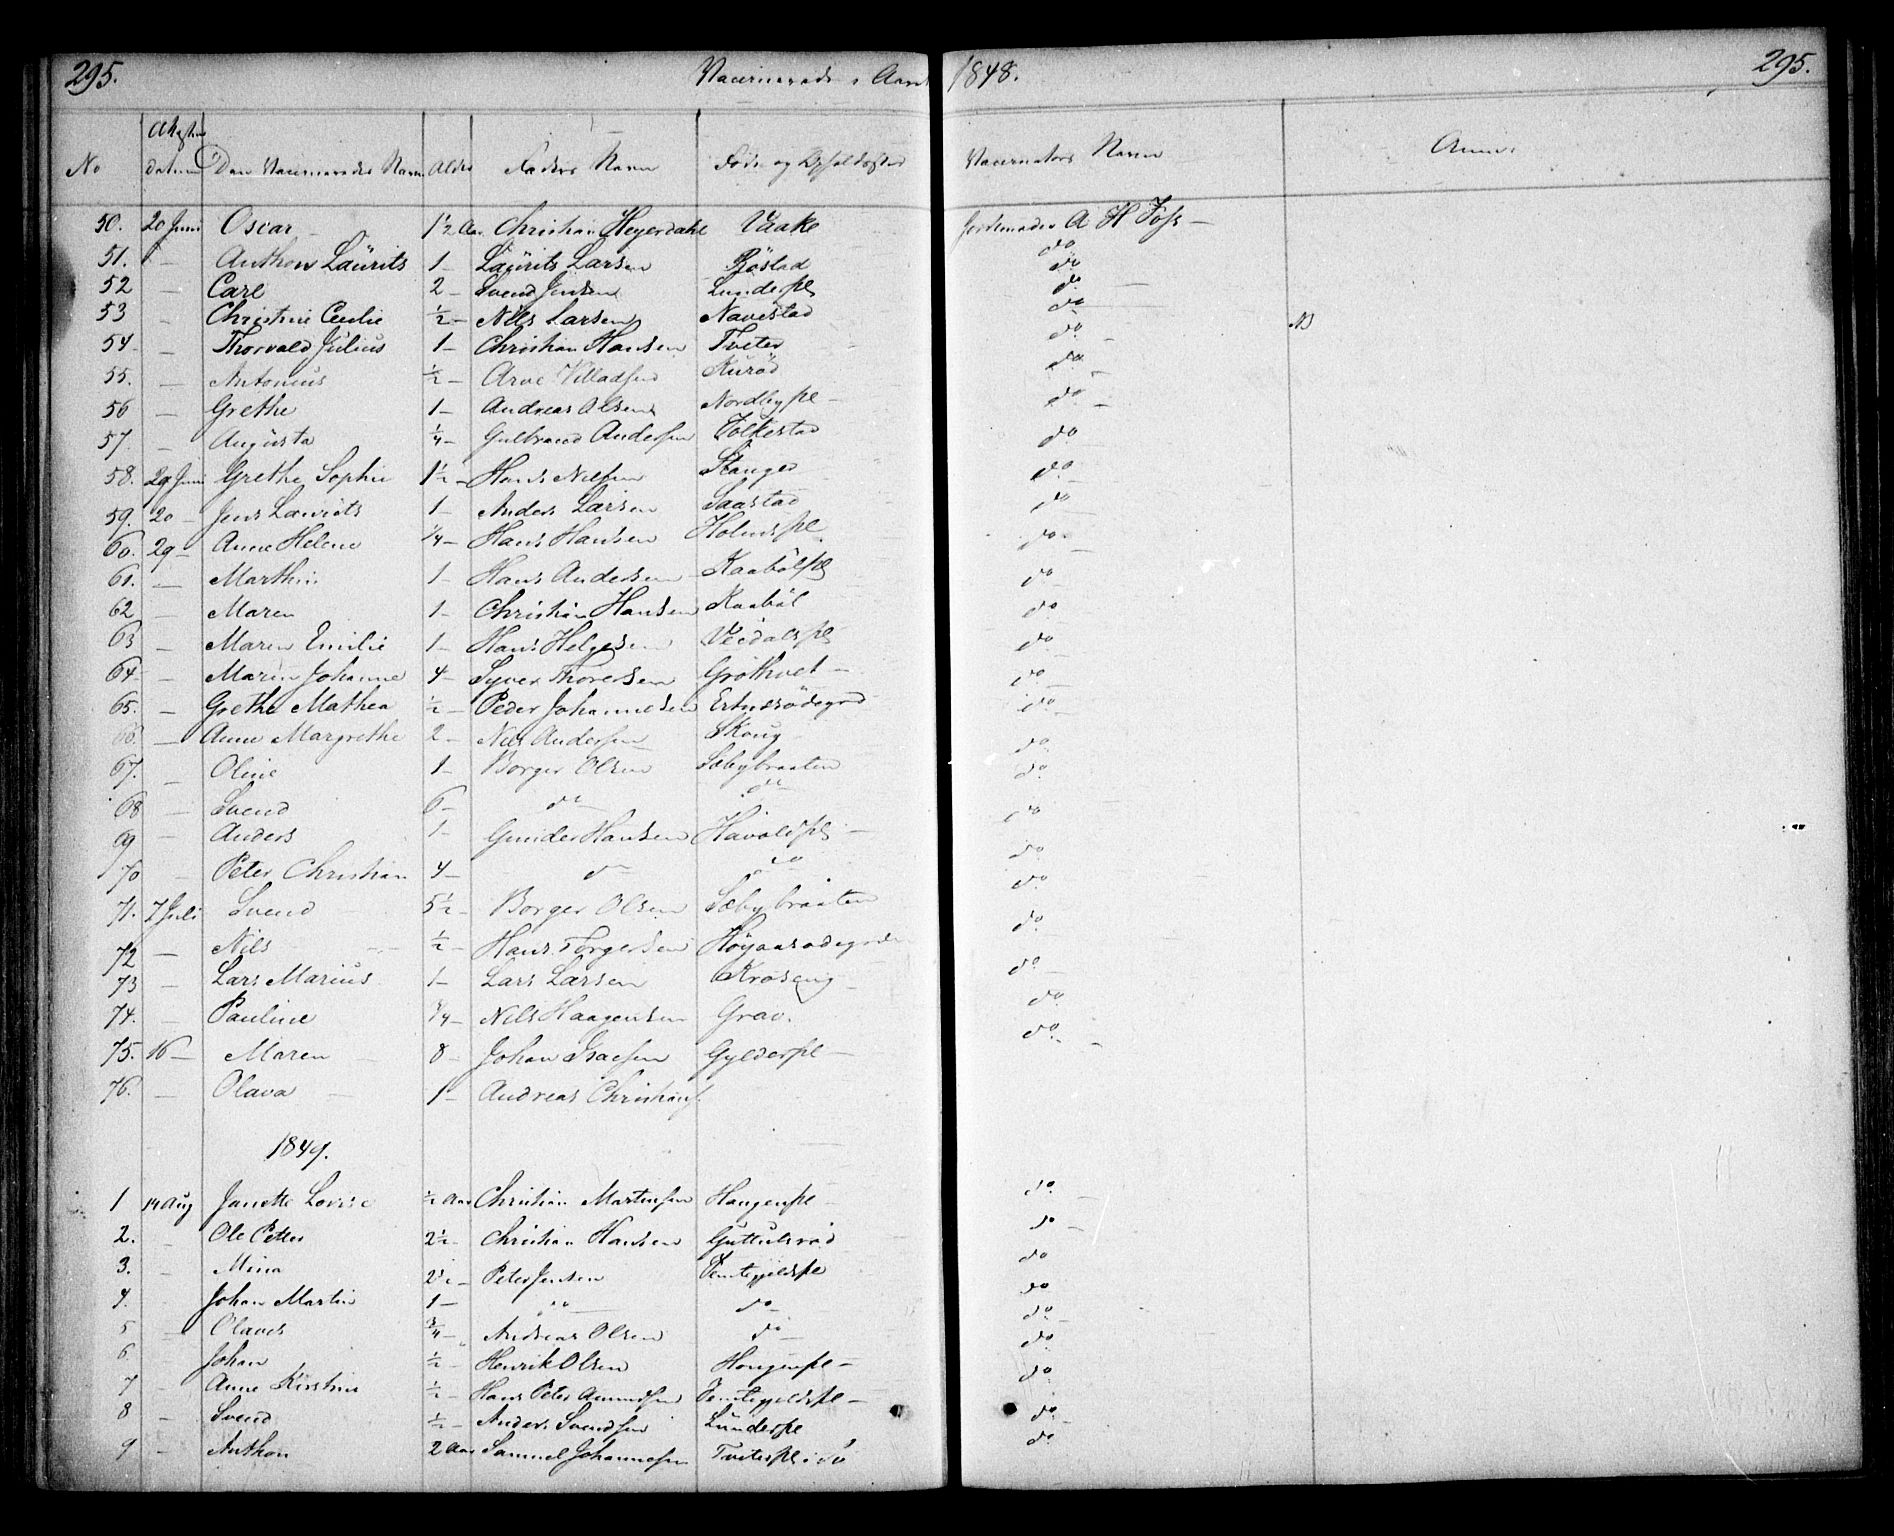 295. Vaccinerede i Aaret 1848. 295.
No Attestens datum Den Vaccineredes Navn Alder Faders Navn Føde og Opholdssted Vaccinators Navn Anm:
50. 20 Juni Oscar 1½ Aar Christian Heyerdahl Vaake Jordemoder A H Foss
51. — Anthon Laurits 1 — Laurits Larsen Röstad do
52 — Carl 2 — Svend Jensen Lundepl do
53 — Christine Cecilie ½ — Nils Larsen Navestad do
54 — Thorvald Julius 1 — Christian Hansen Tveter do
55. — Antonius ½ — Arne Villadsen Kuröd do
56 — Grethe 1 — Andreas Olsen Nordbypl — do
57. — Augusta ¼ — Gulbrand Andersen Folkestad do
58. 29 Juni Grethe Sophie 1½ — Hans Nilsen Stanged do
59. 20 — Jens Laurits 1 — Anders Larsen Saastad do
60. 29 — Anne Helene ¼ — Hans Hansen Holmspl. do
61. — Marthin 1 — Hans Andersen Kaabölpl do
62 — Maren 1 — Christian Hansen Kaaböl do
63 — Maren Emilie 1 — Hans Helgesen Veidalspl do
64 — Maren Johanne 4 — Syver Thoresen Gröthvet — do
65. — Grethe Mathea ½ — Peder Johannesen do
66. — Anne Margrethe 2 — Nils Andersen Skoug do
67. — Oline 1 — Borger Olsen Sæbybraaten do
68 — Svend 6 — do do do
69 — Anders 1 — Gunder Hansen Havoldpl — do
70 — Peter Christian 4 — do do do
71. 7 Juli Svend 5½ — Borger Olsen Sæbybraaten do
72 — Nils ½ — Hans Torgersen do
73 — Lars Marius 1 — Lars Larsen Kroseng do
74. — Pauline ¾ — Nils Haagensen Grav. do
75. 16 — Maren 8 — Johan Isacsen Gylderpl — do
76. — Olava — 1 — Andreas Christians.
1849.
1 14 Aug Janette Lovise ½ Aar Christian Martinsen Haugenpl — do
2. Ole Petter 2½ — Christian Hansen Guttulsröd do
3. — Mina 2½ — Peter Jensen Tomtegjeldspl do
4. Johan Martin 1 — do do do
5 — Olaves ¾ — Andreas Olsen do do
6. Johan ½ — Henrik Olsen Haugenpl — do
7 — Anne Kirstine ½ — Hans Peter Amundsen Tomtegjeldspl — do
8 — Svend ½ — Anders Svendsen Lunderpl do
9 — Anthon 2 Aar Samuel Johannesen Tveterpl do